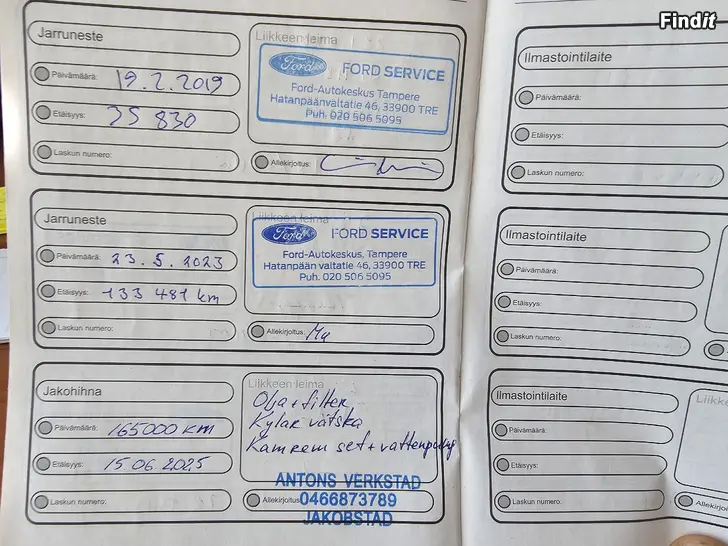 Findit
Jarruneste
Päivämäärä: 19.2.2019
Etäisyys: 35 830
Laskun numero:
Liikkeen leima
Ford FORD SERVICE
Ford-Autokeskus Tampere
Hatanpäänvaltatie 46, 33900 TRE
Puh. 020 506 5095
Allekirjoitus:
Jarruneste
Päivämäärä: 23.5.2023
Etäisyys: 133 481 km
Laskun numero:
Liikkeen leima
Ford FORD SERVICE
Ford-Autokeskus, Tampere
Hatanpään valtatie 46, 33900 TRE
Puh. 020 506 5095
Allekirjoitus:
Jakohihna
Päivämäärä: 165000 km
Etäisyys: 15 06 2025
Laskun numero:
Liikkeen leima
Olja + filter
Kylar vätska
Kamrem set + vattenpump
ANTONS VERKSTAD
0466873789
JAKOBSTAD
Allekirjoitus
Ilmastointilaite
Päivämäärä:
Etäisyys:
Laskun numero:
Ilmastointilaite
Päivämäärä:
Etäisyys:
Laskun numero:
Ilmastointilaite
Päivämäärä:
Etäisyys:
Laskun numero:
Liikke
Allekirjoi